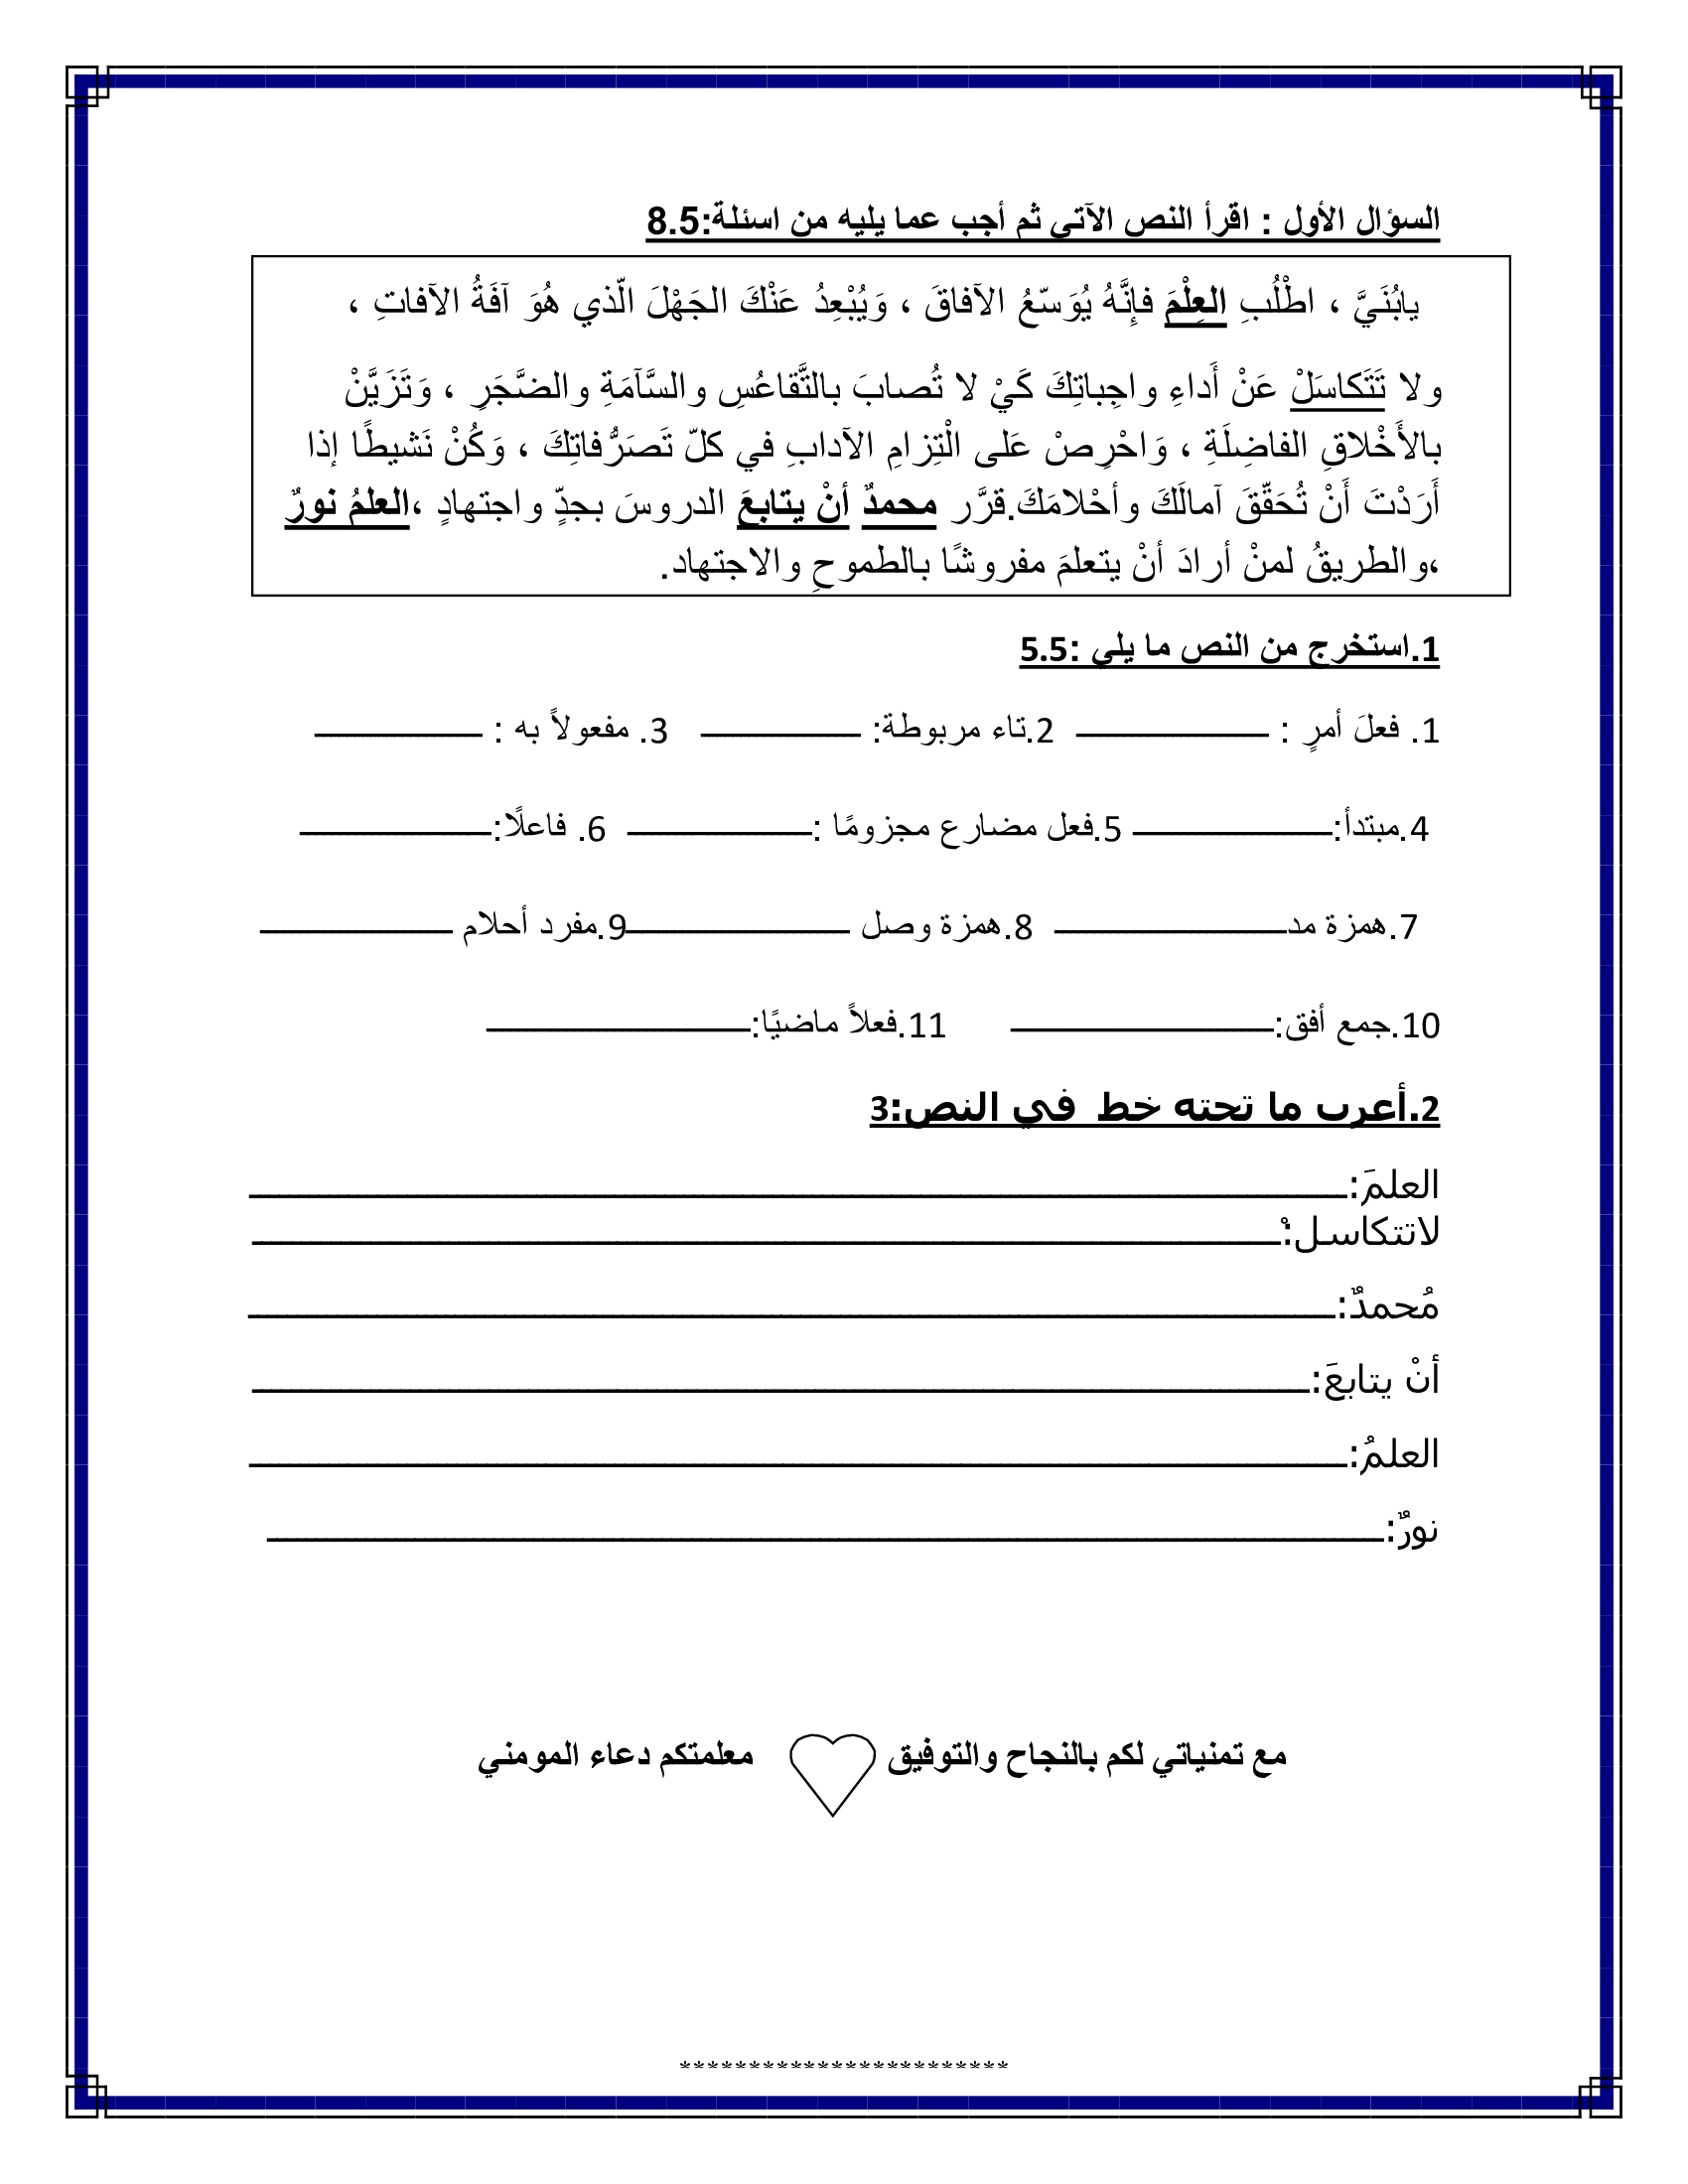 السؤال الأول : اقرأ النص الآتي ثم أجب عما يليه من اسئلة:8.5
يابُنَيَّ ، اطْلُبِ العِلْمَ فإِنَّهُ يُوَسّعُ الآفاقَ ، وَيُبْعِدُ عَنْكَ الجَهْلَ الّذي هُوَ آفَةُ الآفاتِ ،
ولا تَتَكاسَلْ عَنْ أَداءِ واجِباتِكَ كَيْ لا تُصابَ بالتَّقاعُسِ والسَّآمَةِ والضَّجَرِ ، وَتَزَيَّنْ
بالأَخْلاقِ الفاضِلَةِ ، وَاحْرِصْ عَلى الْتِزامِ الآدابِ في كلّ تَصَرُّفاتِكَ ، وَكُنْ نَشيطًا إذا
أَرَدْتَ أَنْ تُحَقّقَ آمالَكَ وأحْلامَكَ.قرَّر محمدٌ أنْ يتابعَ الدروسَ بجدٍّ واجتهادٍ ،العلمُ نورٌ
،والطريقُ لمنْ أرادَ أنْ يتعلمَ مفروشًا بالطموحِ والاجتهاد.
1.استخرج من النص ما يلي :5.5
1. فعلَ أمرٍ : ــــــــــــــــــ 2.تاء مربوطة: ــــــــــــــــــ 3. مفعولاً به : ــــــــــــــــــ
4.مبتدأ:ــــــــــــــــــ 5.فعل مضارع مجزومًا :ــــــــــــــــــ 6. فاعلًا:ــــــــــــــــــ
7.همزة مدــــــــــــــــــ 8.همزة وصل ــــــــــــــــــ9.مفرد أحلام ــــــــــــــــــ
10.جمع أفق:ــــــــــــــــــ 11.فعلاً ماضيًا:ــــــــــــــــــ
2.أعرب ما تحته خط في النص:3
العلمَ:ــــــــــــــــــــــــــــــــــــ
لاتتكاسل:ْــــــــــــــــــــــــــــــــــــ
مُحمدٌ:ــــــــــــــــــــــــــــــــــــ
أنْ يتابعَ:ــــــــــــــــــــــــــــــــــــ
العلمُ:ــــــــــــــــــــــــــــــــــــ
نورٌ:ــــــــــــــــــــــــــــــــــــ
مع تمنياتي لكم بالنجاح والتوفيق معلمتكم دعاء المومني
************************